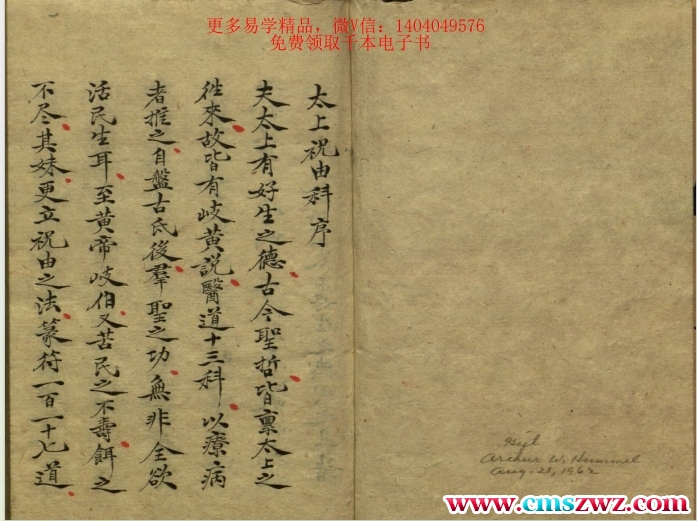 更多易学精品，微V信：1404049576
免费领取千本电子书
太上祝由科序
夫太上有好生之德古今聖哲皆稟太上之
徃來故皆有岐黄說醫道十三科以療病
者推之自盤古氏後羣聖之功無非全欲
活民生耳至黄帝岐伯又苦民之不壽餌之
不尽其妹更立祝由之法篆符一百一十七道
Gift
Arthur W. Hummel
Aug. 28, 1962
www.cmszwz.com